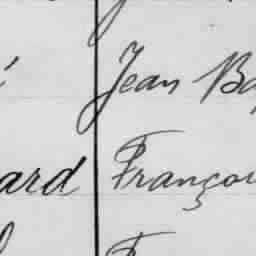 Jean Ba
ard Françoi